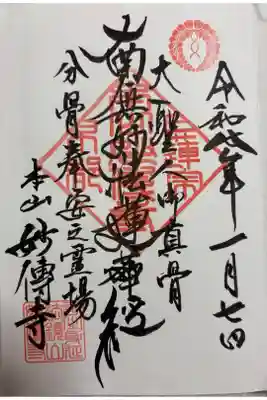 令和八年一月七日
大聖人御真骨
南無妙法蓮華経
分骨奉安之霊場
本山 妙傳寺